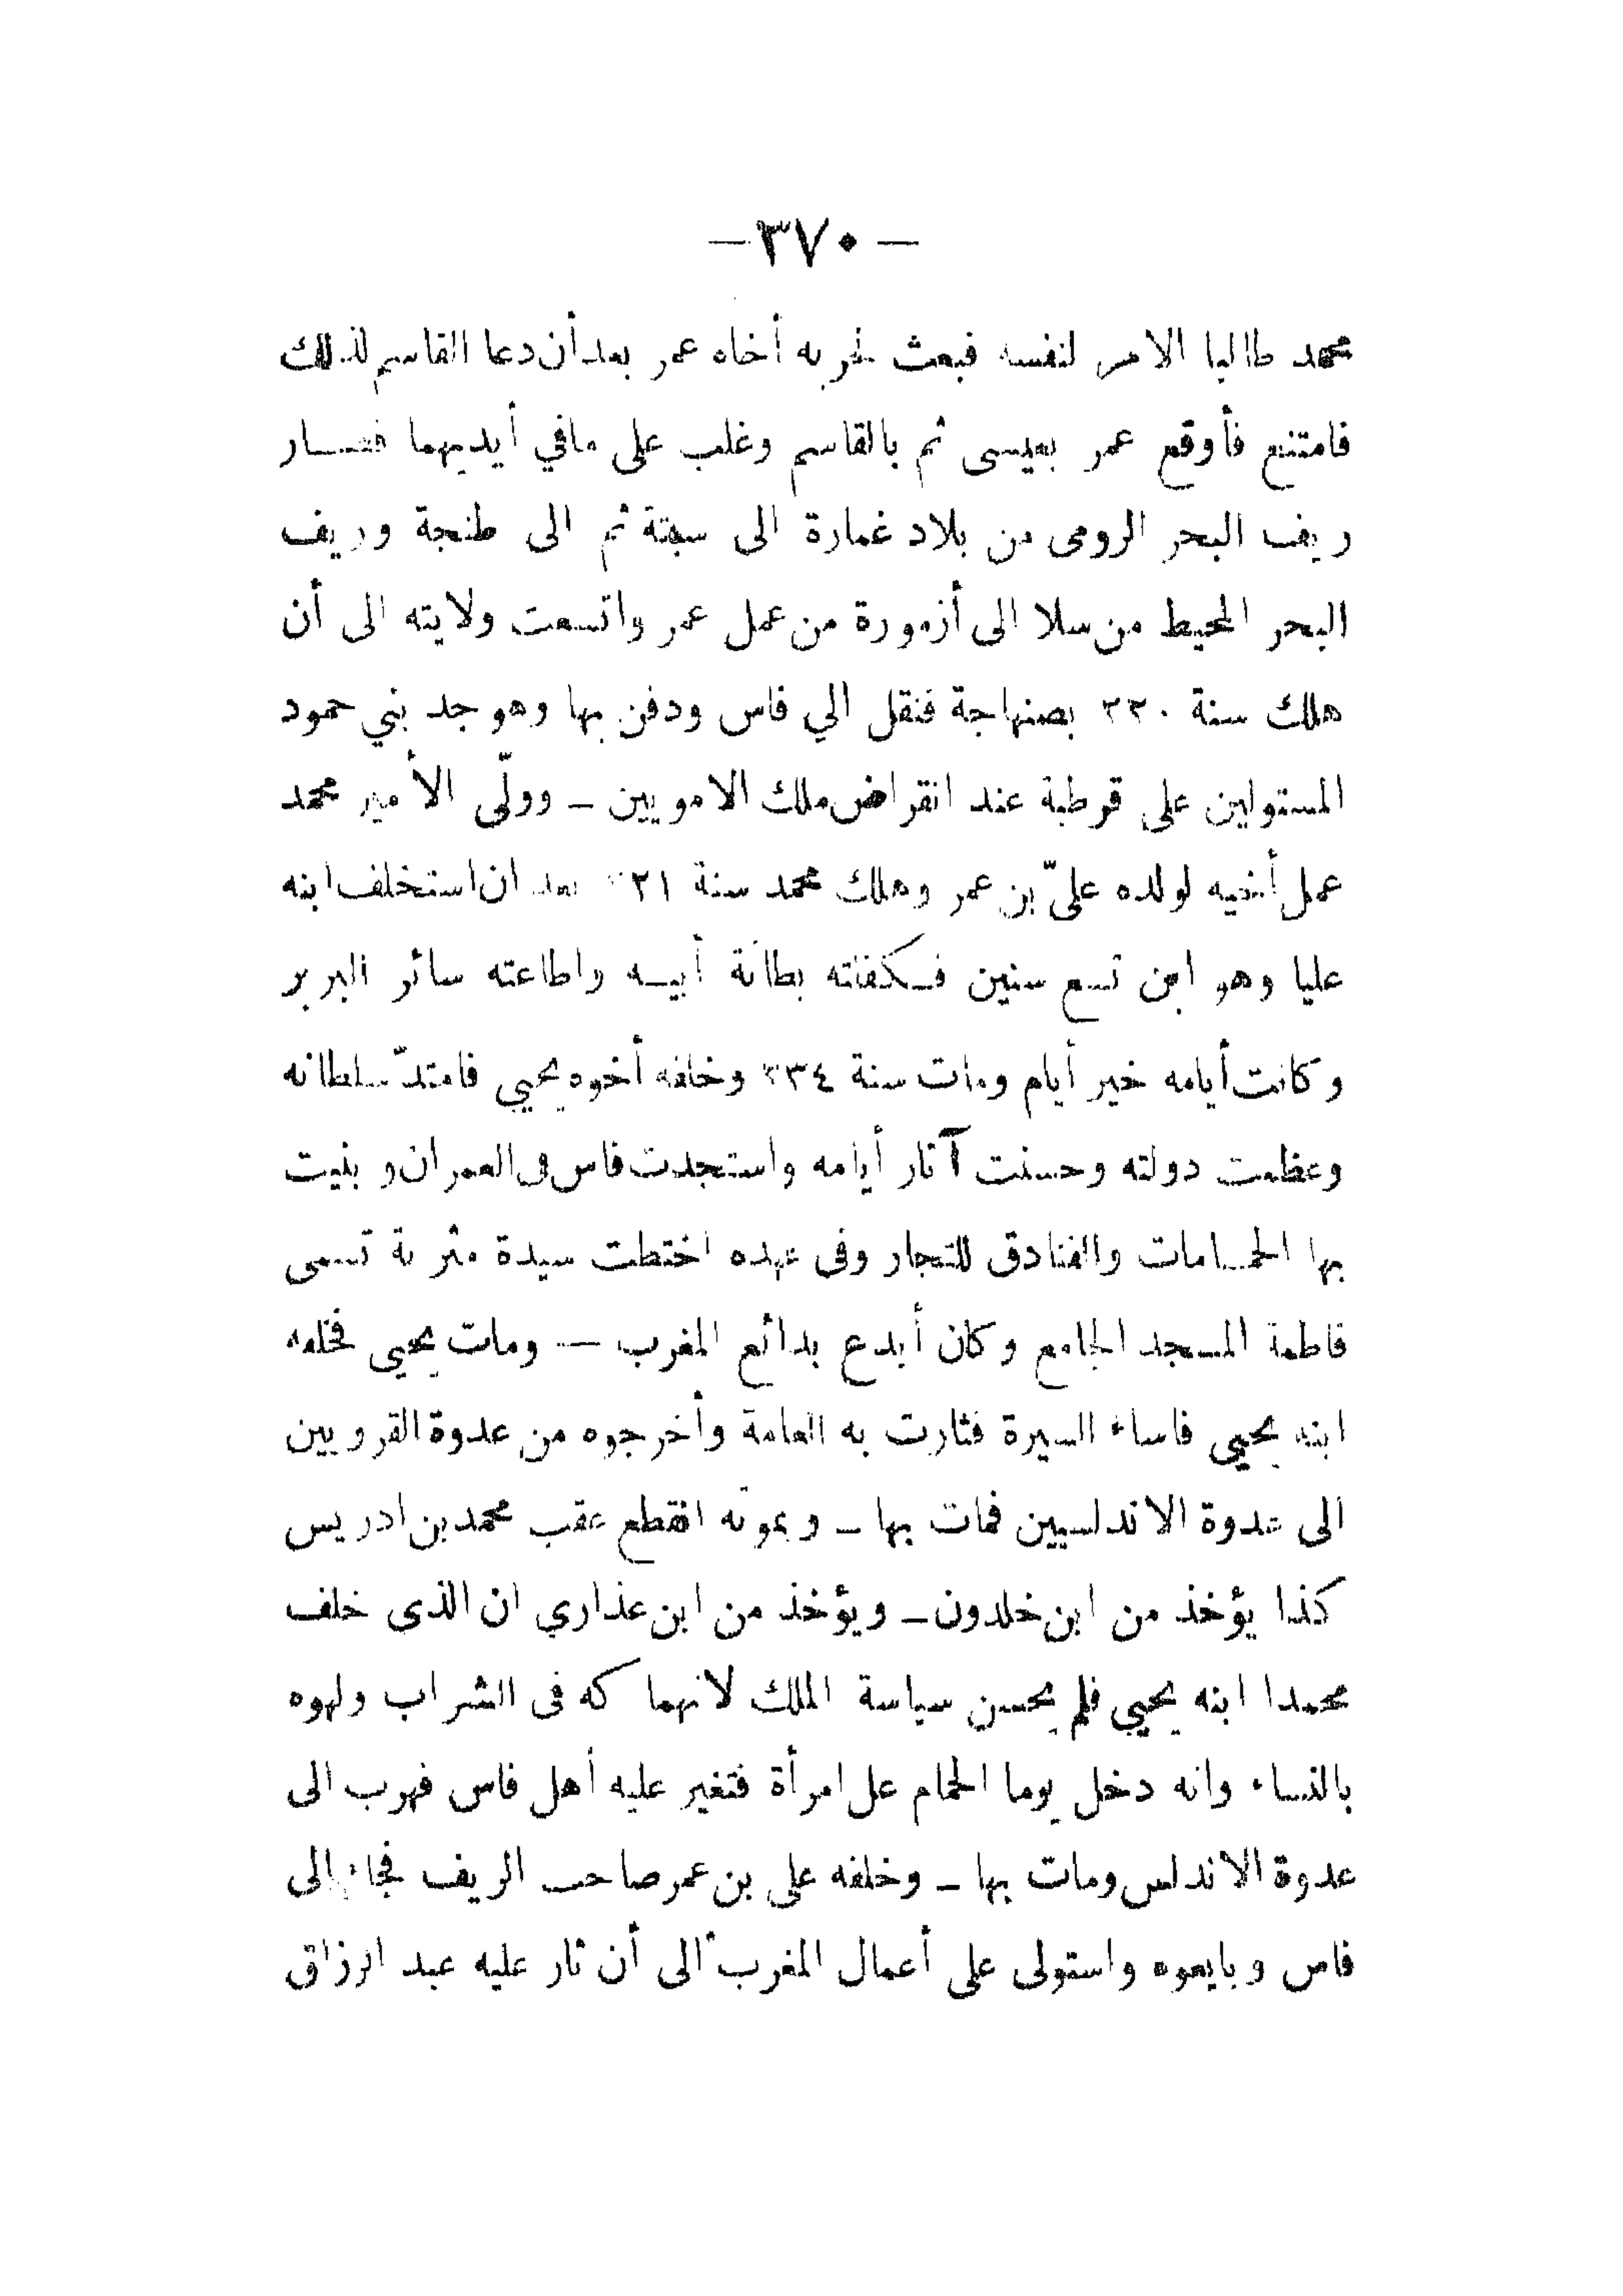 — ٣٧٠ —
محمد طالبا الامر لنفسه فبعث لحربه أخاه عمر بعد أن دعا القاسم لذلك
فامتنع فأوقع عمر بعيسى ثم بالقاسم وغلب على مافي أيديهما فصار
ريف البحر الرومى من بلاد غمارة الى سبتة ثم الى طنجة وريف
البحر المحيط من سلا الى أزمورة من عمل عمر واتسعت ولايته الى أن
هلك سنة ٢٢٠ بصنهاجة فنقل الي فاس ودفن بها وهو جد بني حمود
المستولين على قرطبة عند انقراض ملك الامويين – وولّى الأمير محمد
عمل أخيه لولده علىّ بن عمر وهلك محمد سنة ٢٢١ بعد ان استخلف ابنه
عليا وهو ابن تسع سنين فكفلته بطانة أبيه واطاعته سائر البربر
وكانت أيامه خير أيام ومات سنة ٢٣٤ وخلفه أخوه يحيي فامتدّ سلطانه
وعظمت دولته وحسنت آثار أيامه واستجدت فاس فى العمران وبنيت
بها الحمامات والفنادق للتجار وفى عهده اختطت سيدة مثرية تسمى
فاطمة المسجد الجامع وكان أبدع بدائع المغرب — ومات يحيى فخلفه
ابنه يحيي فاساء السيرة فثارت به العامة وأخرجوه من عدوة القرويين
الى عدوة الاندلسيين فمات بها – وبموته انقطع عقب محمد بن ادريس
كذا يؤخذ من ابن خلدون – ويؤخذ من ابن عذاري ان الذى خلف
محمدا ابنه يحيي فلم يحسن سياسة الملك لانهماكه فى الشراب ولهوه
بالنساء وانه دخل يوما الحمام على امرأة فتغير عليه أهل فاس فهرب الى
عدوة الاندلس ومات بها – وخلفه على بن عمر صاحب الريف فجاء إلى
فاس وبايعوه واستولى على أعمال المغرب الى أن ثار عليه عبد الرزاق